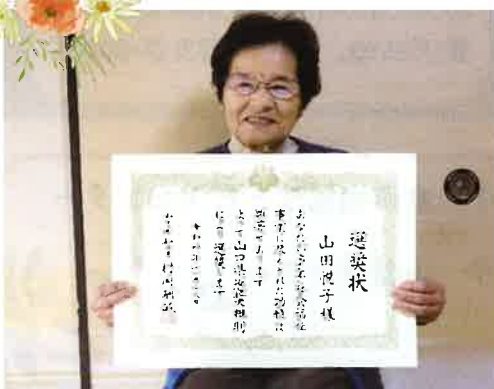 選奨状
山田悦子様
あなたは多年社会福祉
事業に尽くされた功績は
顕著であります
よって山口県選奨規則
により選奨します
令和
山口県知事 村岡嗣政